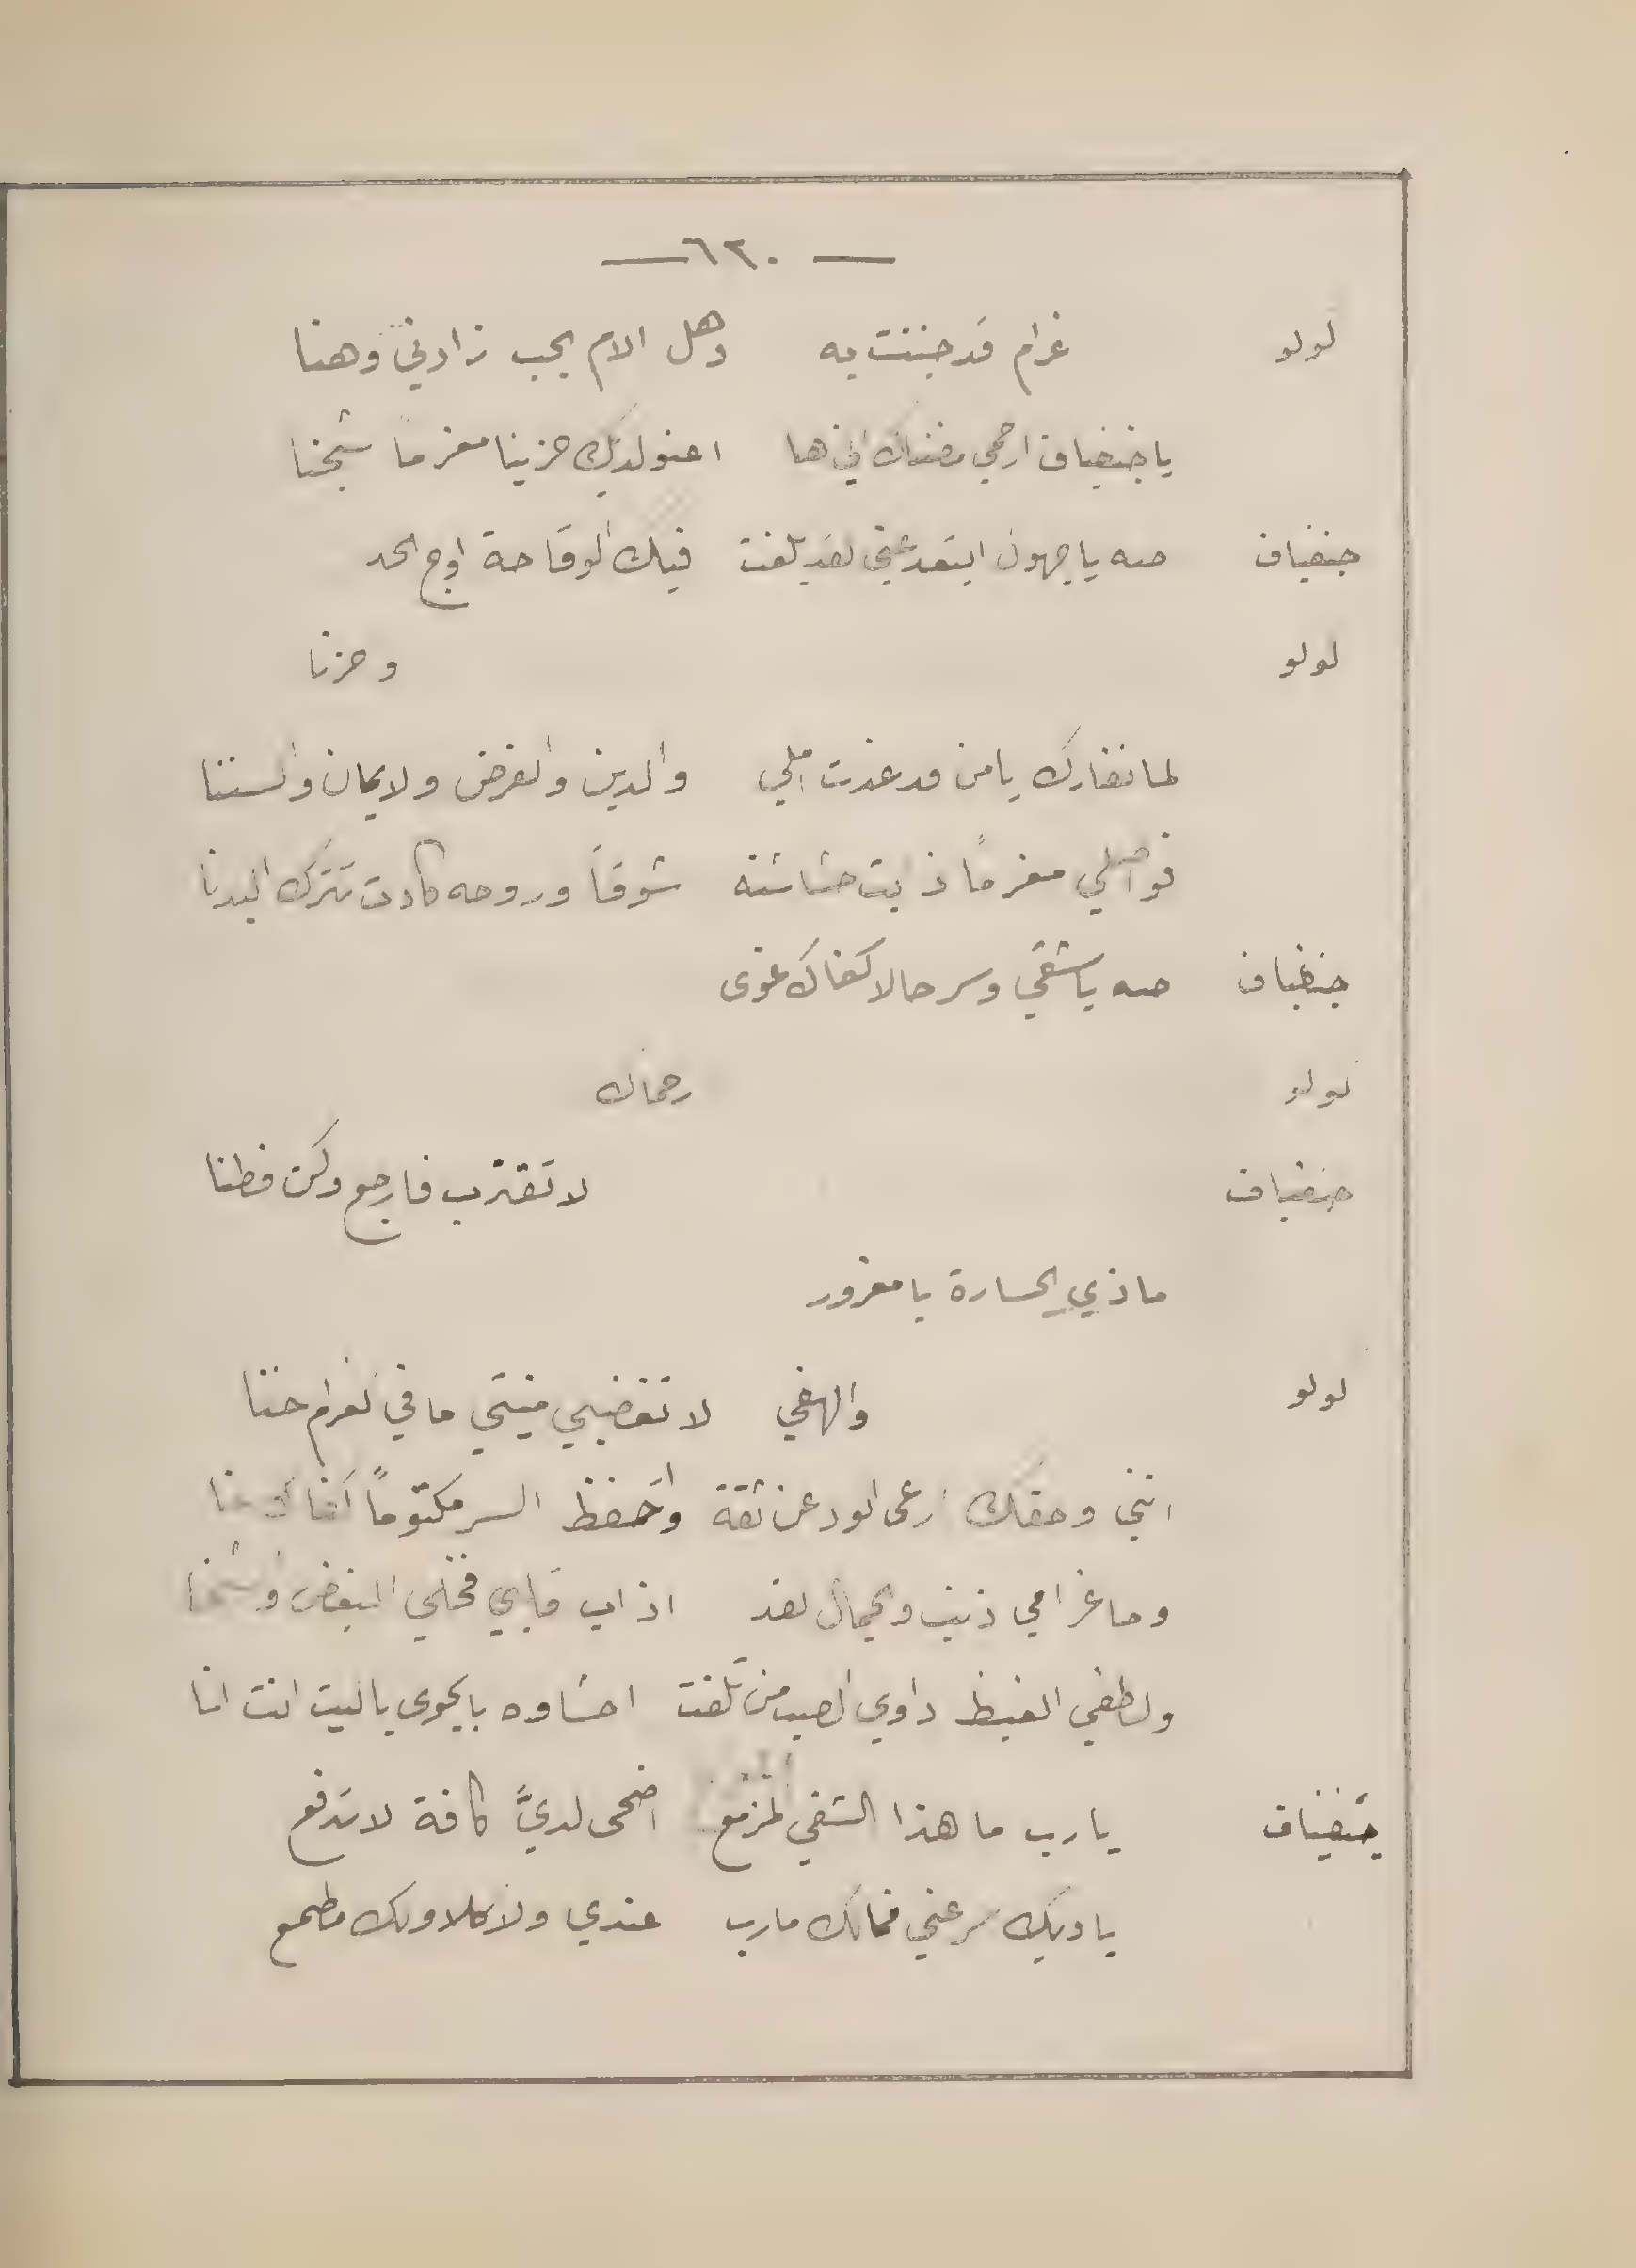 — ٦٢٠ —
لولو غرام قد جننت به وهل الام بحب زادني وهنا
يا جنفياف ارحمي مضناك اني ها اعنو لديك حزينا مغرماً شجنا
جنفياف صه يا جهول ابتعد عني لقد بلغت فيك الوقاحة اوج الحد
لولو وحزنا
لما نفارك يا من قد غدت املي والدين والفرض والايمان والسننا
فواصلي مغرماً ذابت حشاشته شوقاً وروحه كادت تترك البدنا
جنفياف صه يا شقي وسر حالا كفاك غوى
لولو رحماك
جنفياف لا تقترب فارجع وكن فطنا
ما ذي الجسارة يا مغرور
لولو والهفي لا تغضبي منيتي ما في الغرام خنا
انني وحقك ارعى الود عن ثقة واحفظ السر مكتوماً
وما غرامي ذنب والجمال لقد اذاب قلبي فخلي البغض
ولطفي الغيظ داوي الصب من تلفت احشاوه بالجوى يا ليت انت انا
جنفياف يا رب ما هذا الشقي المزمع اضحى لديَّ كافة لا تدفع
يا ويك سر عني فما لك مارب عندي ولا كلا ولك مطمع